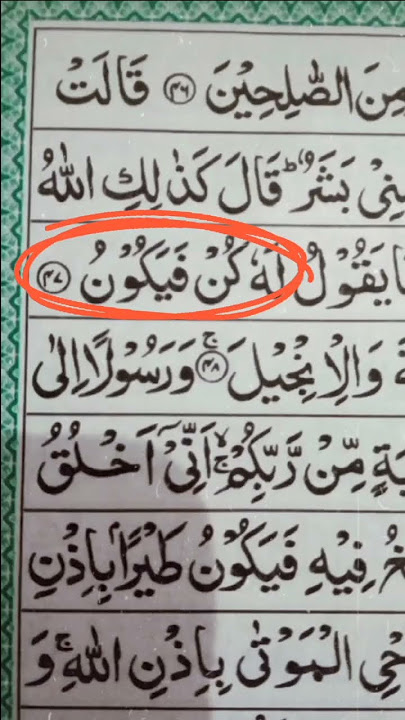 مِنَ الصّٰلِحِيْنَ ﴿۴۶﴾ قَالَتْ
بَشَرٌ ؕ قَالَ كَذٰلِكِ اللّٰهُ
يَقُوْلُ لَهٗ كُنْ فَيَكُوْنُ ﴿۴۷﴾
وَالْاِنْجِيْلَ ۚ﴿۴۸﴾ وَرَسُوْلًا اِلٰى
مِّنْ رَّبِّكُمْ ۙۚ اَنِّىْۤ اَخْلُقُ
فِيْهِ فَيَكُوْنُ طَيْرًۢا بِاِذْنِ
الْمَوْتٰى بِاِذْنِ اللّٰهِ ۚ وَ